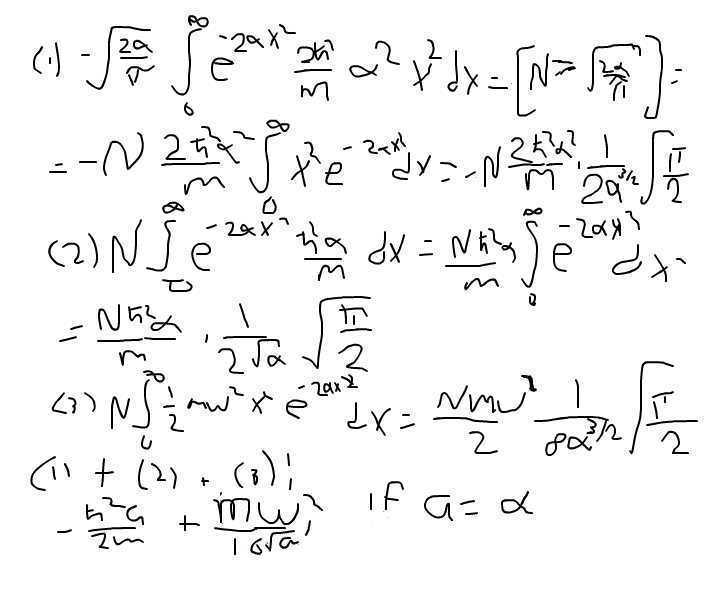 (1) -√(2a/π) ∫₀^∞ e^(-2αx²) 2ħ²/m α² x² dx = [N = √(2α/π)] =
= -N 2ħ²α²/m ∫₀^∞ x² e^(-2αx²) dx = -N 2ħ²α²/m · 1/(2a^(3/2)) √(π/2)
(2) N ∫₀^∞ e^(-2αx²) ħ²α/m dx = Nħ²α/m ∫₀^∞ e^(-2αx²) dx =
= Nħ²α/m · 1/(2√α) √(π/2)
(3) N ∫₀^∞ 1/2 mω² x² e^(-2αx²) dx = Nmω²/2 1/(8α^(3/2)) √(π/2)
(1) + (2) + (3):
-ħ²a/2m + mω²/(16√a), if a = α